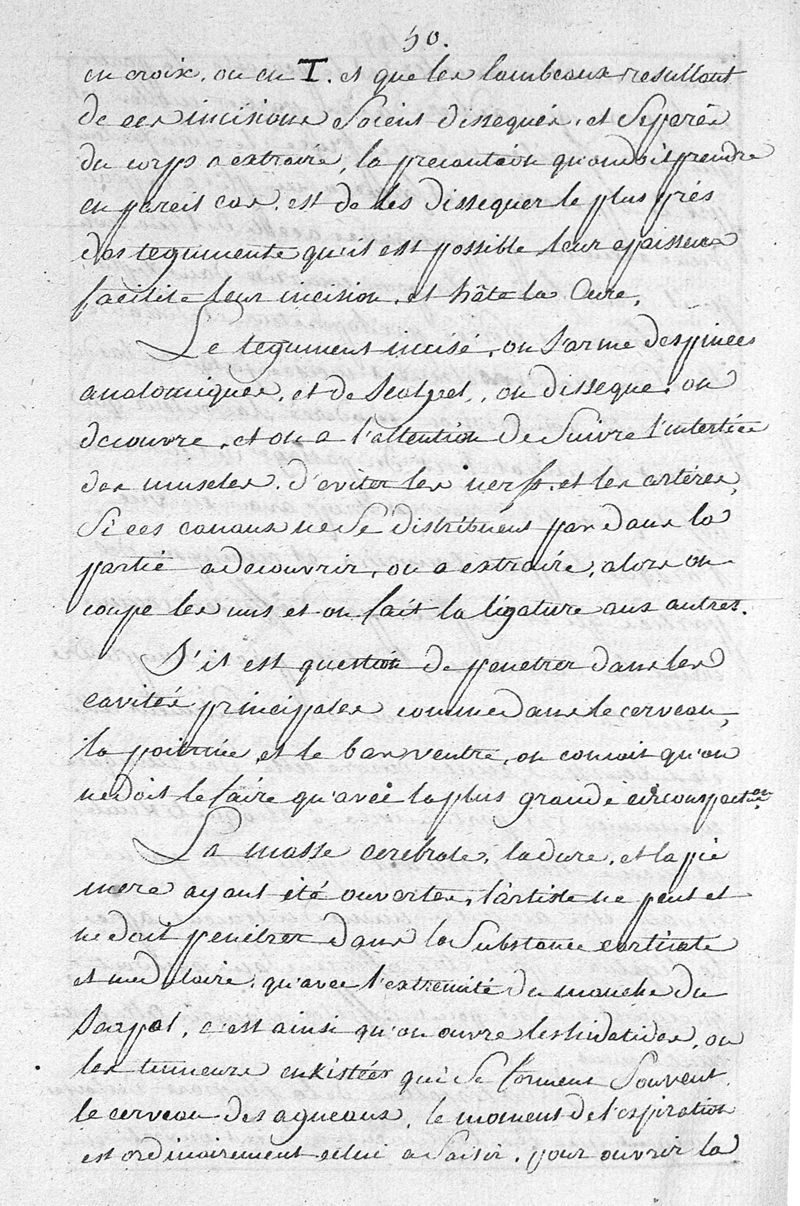 50.
en croix, ou en T. et que les lambeaux resultant
de ces incisions soient dissequés, et séparés
du corps a extraire, la precaution qu'on doit prendre
en pareil cas, est de les dissequer le plus près
des tegumens qu'il est possible leur epaisseur
facilite leur incision, et hâte la cure.
Le tegument incisé, on s'arme des pinces
anatomiques, et de scalpel, on disseque, on
decouvre, et on a l'attention de suivre l'interstice
des muscles, d'eviter les nerfs, et les artères,
si ces canaux ne se distribuent pas dans la
partie a decouvrir, ou a extraire, alors on
coupe les uns et on fait la ligature aux autres.
S'il est question de penétrer dans les
cavités principales comme dans le cerveau,
la poitrine, et le bas ventre, on conçoit qu'on
ne doit le faire qu'avec la plus grande circonspection.
La masse cerebrale, la dure, et la pie
mere ayant été ouvertes, l'artiste ne peut et
ne doit penétrer dans la substance corticale
et medulaire, qu'avec l'extremité du manche du
scarpel, c'est ainsi qu'on ouvre les hidatides, ou
les tumeurs enkistées qui se forment souvent
le cerveau des agneaux, le moment de l'expiration
est ordinairement celui a saisir, pour ouvrir la